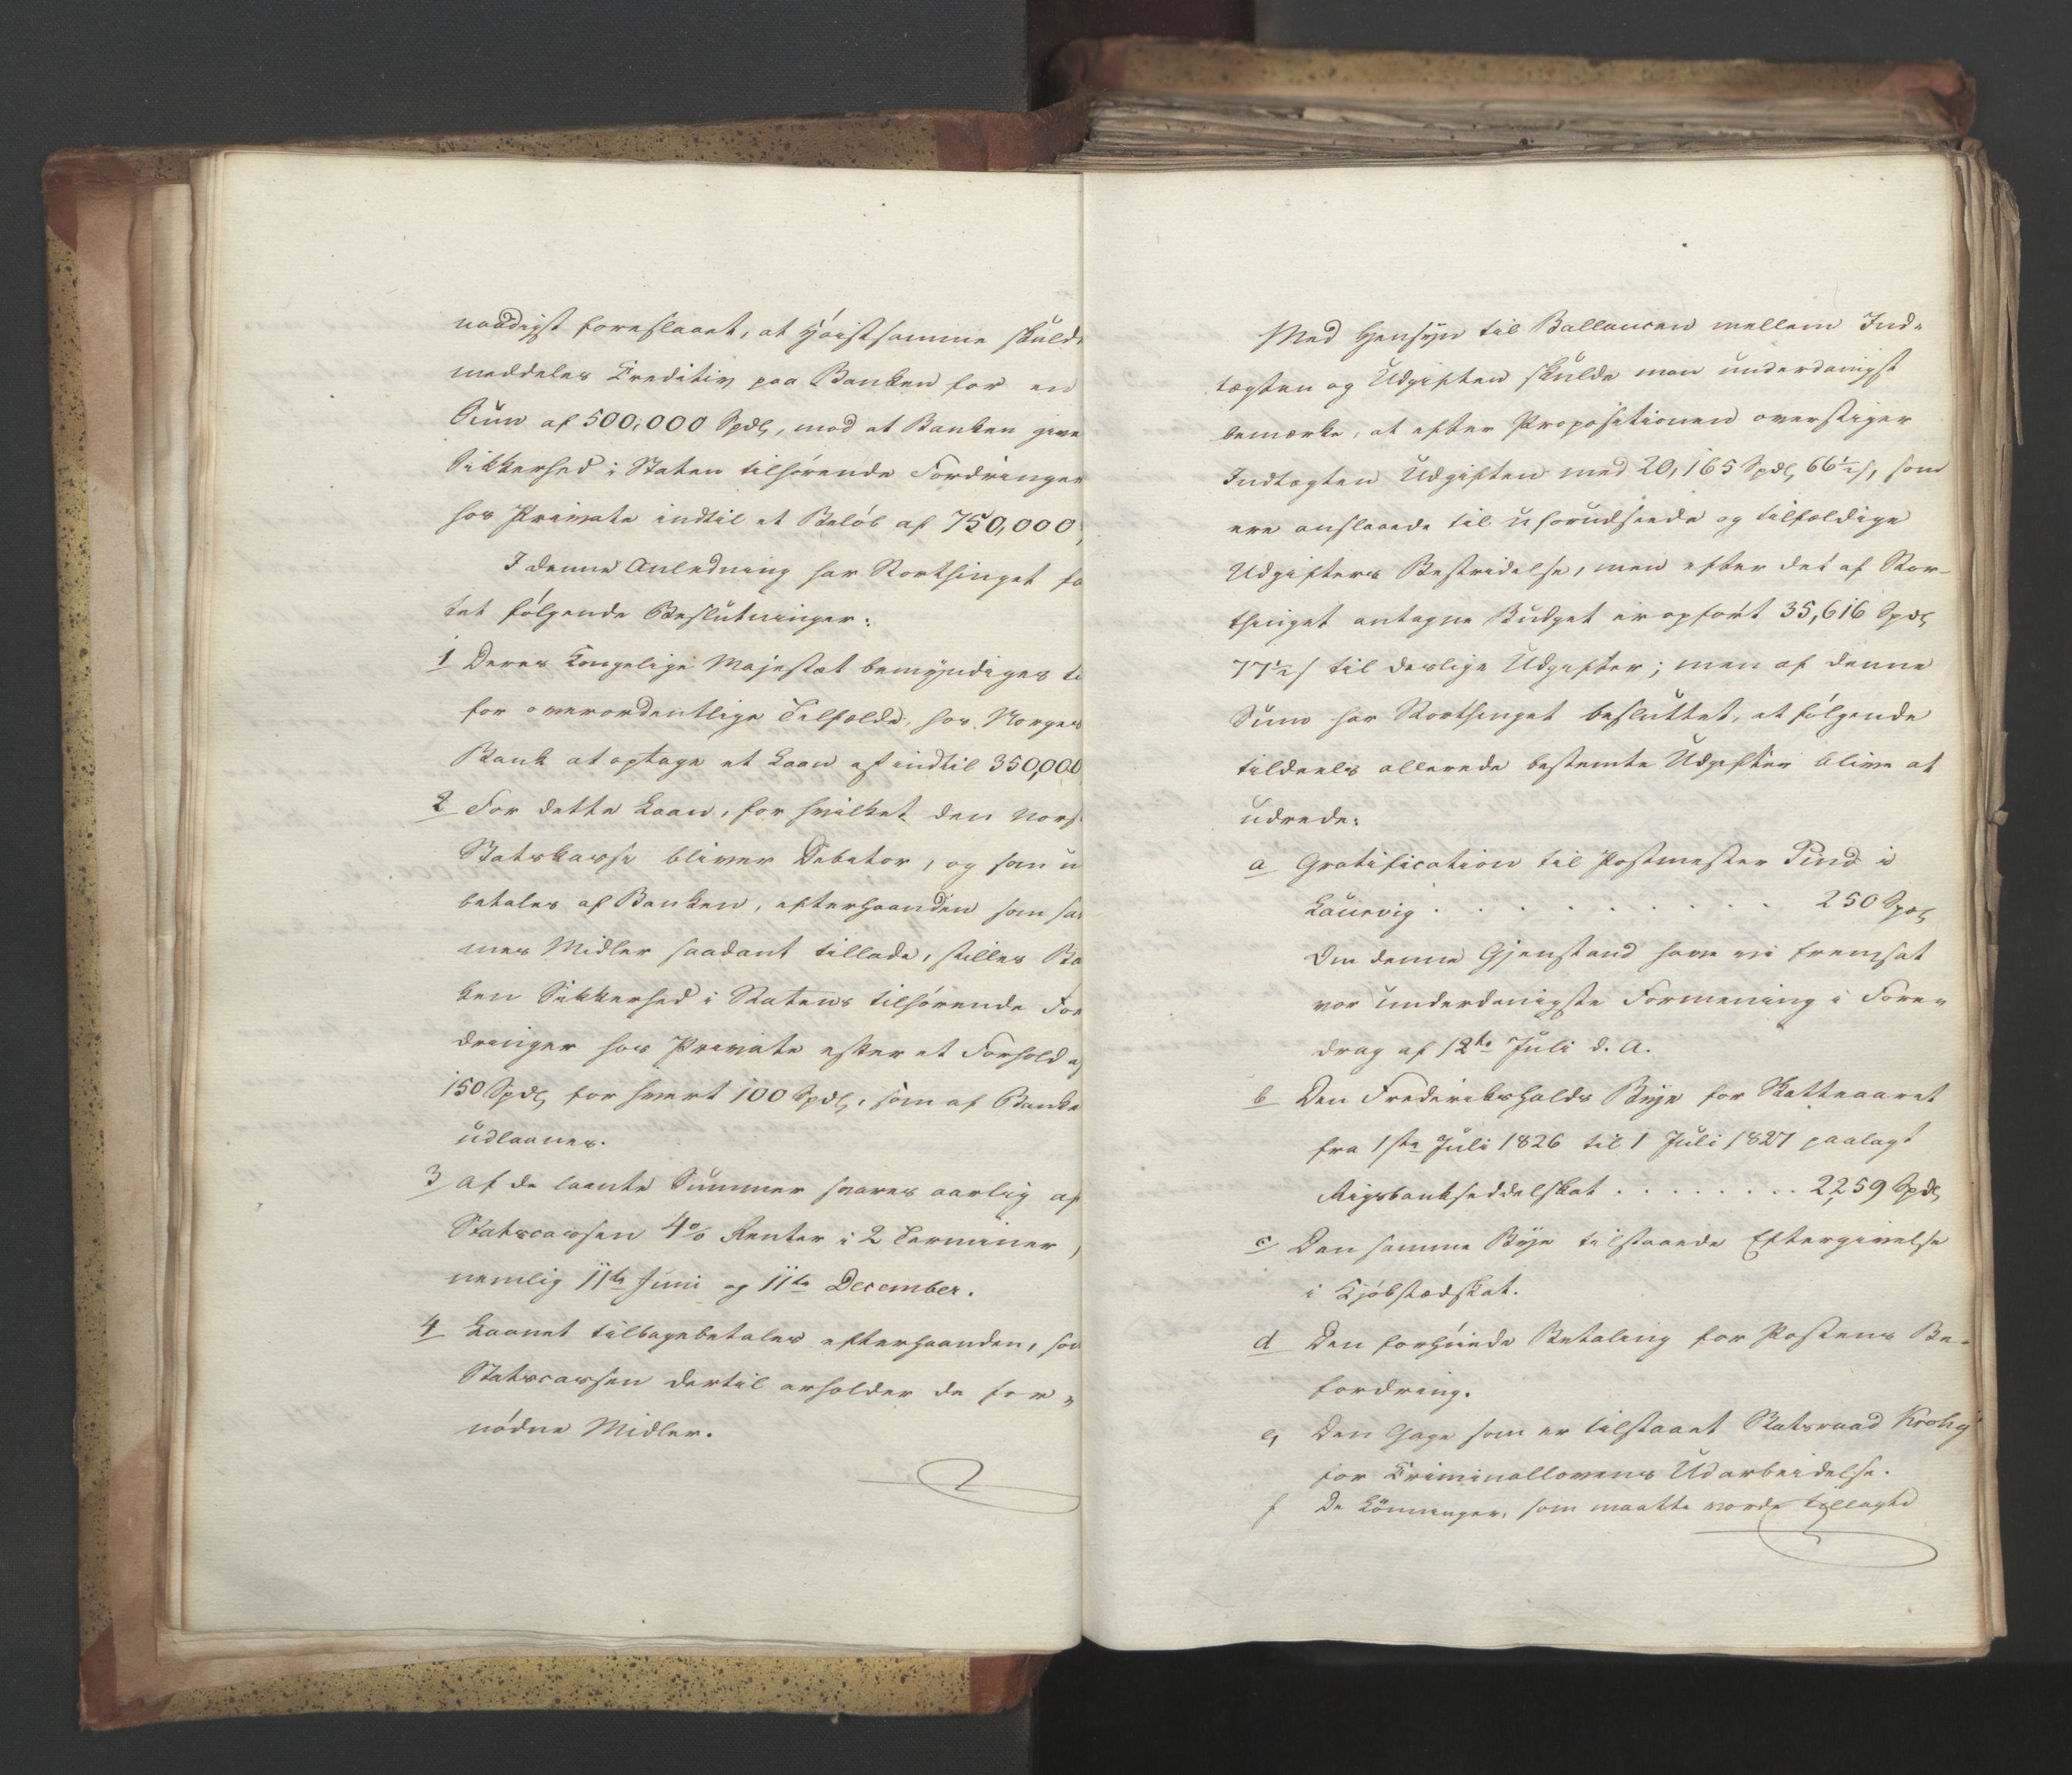 naadigst foreslaaet, at Høistsamme skulde
meddeles Creditiv paa Banken for en
Sum af 500,000 Spdl, mod at Banken gives
Sikkerhed i Staten tilhørende Fordringer
hos Private indtil et Beløb af 750,000
I denne Anledning har Storthinget fa
tet følgende Beslutninger:
1 Deres Kongelige Majestæt bemyndiges til
for overordentlige Tilfælde, hos Norges
Bank at optage et Laan af indtil 350,000
2 For dette Laan, for hvilket den Norske
Statskasse bliver Debitor, og som u
betales af Banken, efterhaanden som sam
mes Midler saadant tillade, stilles Ba
ken Sikkerhed i Statens tilhørende For
dringer hos Private efter et Forhold af
150 Spdl for hvert 100 Spdl, som af Banken
udlaanes.
3 Af de laante Summer svares aarlig af
Statscassen 4% Renter i 2 Terminer,
nemlig 11te Juni og 11te December.
4 Laanet tilbagebetales efterhaanden, som
Statscassen dertil erholder de for-
nødne Midler.
Med Hensyn til Ballancen mellem Ind-
tægten og Udgiften skulde man underdanigst
bemærke, at efter Propositionen overstiger
Indtægten Udgiften med 20,165 Spdl 66½ s, som
ere anslaaede til uforudseede og tilfældige
Udgifters Bestridelse, men efter det af Stor-
thinget antagne Budget er opført 35,616 Spdl
77½ s til deslige Udgifter; men af denne
Sum har Storthinget besluttet, at følgende
tildeels allerede bestemte Udgifter blive at
udrede:
a Gratification til Postmester Pind i
Laurvig . . . . . . . . . 250 Spdl
Om denne Gjenstand have vi fremsat
vor underdanigste Formening i Fore-
drag af 12te Juli d. A.
b Den Frederikshalds Bye for Skatteaaret
fra 1ste Juli 1826 til 1 Juli 1827 paalagt
Rigsbankseddelskat . . . . . . . . 2259 Spdl
c Den samme Bye tilstaaede Eftergivelse
i Kjøbstædskat.
d Den forhøiede Betaling for Postens Be-
fordring.
e, Den Gage som er tilstaaet Statsraad Krohg
for Criminallovens Udarbeidelse.
f De Lønninger, som maatte vorde tillagte